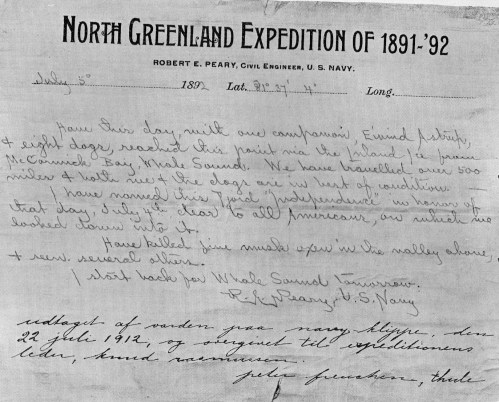 NORTH GREENLAND EXPEDITION OF 1891-'92
ROBERT E. PEARY, CIVIL ENGINEER, U. S. NAVY.
July 5" 1892 Lat. 81° 37' 4" Long.
Have this day, with one companion, Eivind Astrup,
& eight dogs, reached this point via the Inland Ice from
McCormick Bay, Whale Sound. We have travelled over 500
miles & both we & the dogs are in best of condition
I have named this Fjord "Independence" in honor of
that day, July 4th dear to all Americans, on which we
looked down into it.
Have killed five musk oxen in the valley above,
& seen several others.
I start back for Whale Sound tomorrow.
R. E. Peary, U.S. Navy
udtaget af varden paa navy klippe, den
22 juli 1912, og overgivet til expeditionens
leder, knud rasmussen.
peter freuchen, thule